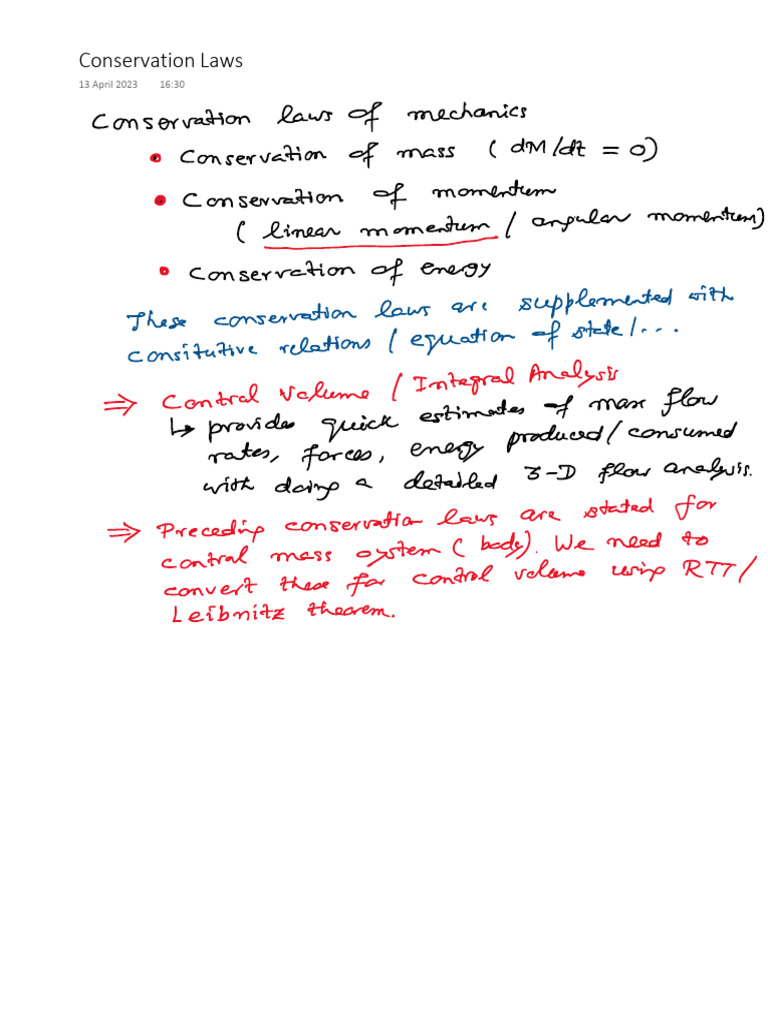 Conservation Laws
13 April 2023 16:30
Conservation laws of mechanics
• Conservation of mass (dM/dt = 0)
• Conservation of momentum
(linear momentum / angular momentum)
• Conservation of energy
These conservation laws are supplemented with
consitutive relations / equation of state/...
⇒ Control Volume / Integral Analysis
↳ provides quick estimates of mass flow
rates, forces, energy produced/consumed
with doing a detailed 3-D flow analysis.
⇒ Preceding conservation laws are stated for
control mass system (body). We need to
convert these for control volume using RTT/
Leibnitz theorem.